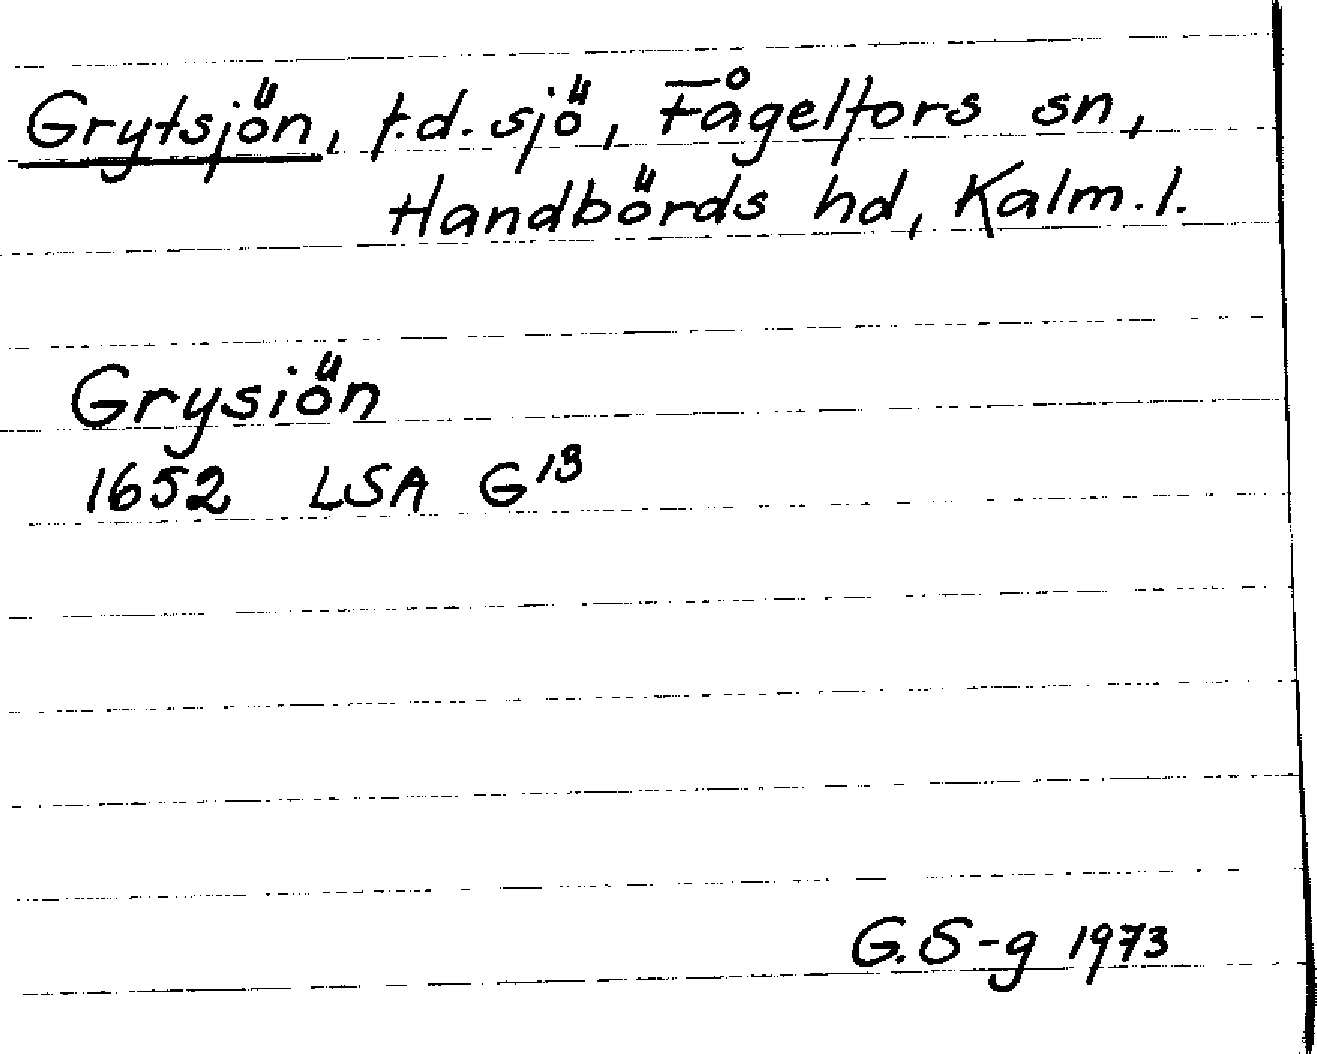 Grytsjön, f.d. sjö, Fågelfors sn,
Handbörds hd, Kalm. l.
Grysiön
1652 LSA G¹³
G. S-g 1973